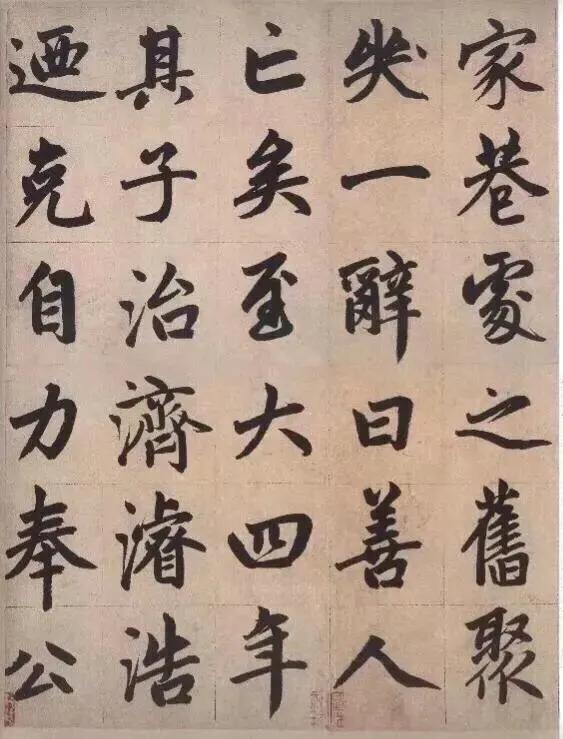 家巷處之舊聚
哭一辭曰善人
亡矣至大四年
其子治濟濬浩
迺克自力奉公